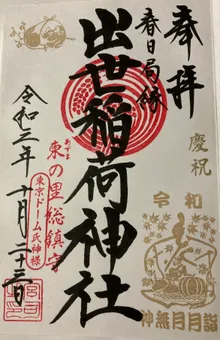 奉拝
春日局縁
慶祝
令和
神無月月詣
出世稲荷神社
あずま
東の里総鎮守
東京ドーム氏神様
令和三年十月二十三日